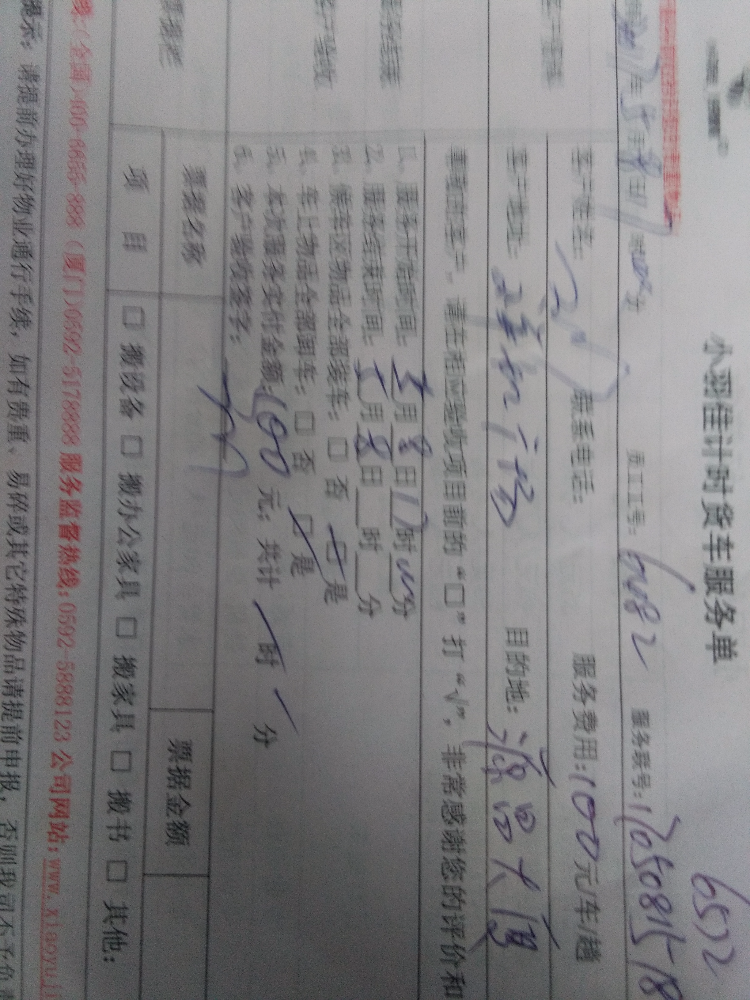 小羽佳计时货车服务单
6522
2017年5月8日17时00分 员工工号: 6082 服务联号: 1705081578
客户姓名: 联系电话: 服务费用: 100元/车/趟
客户地址: 目的地: 源昌大厦
尊敬的客户，请在相应验收项目前的“□”打“√”，非常感谢您的评价和
1、服务开始时间: 5月8日17时00分
2、服务结束时间: 5月8日 时 分
3、候车区物品全部装车: □ 否 □是
4、车上物品全部卸车: □ 否 □是
5、本次服务实付金额: 100 元; 共计 时 分
6、客户验收签字:
票据名称 票据金额
项 目 □ 搬设备 □ 搬办公家具 □ 搬家具 □ 搬书 □ 其他:
(全国)400-6655-888 (厦门)0592-5178888 服务监督热线: 0592-5888123 公司网站: www.xiaoyuji
提示: 请提前办理好物业通行手续, 如有贵重、易碎或其它特殊物品请提前申报, 否则我司不予负